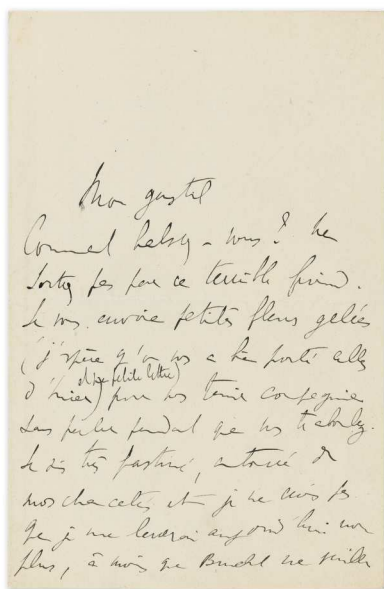 Mon gustel
Comment halsez-vous? Ne
sortez pas par ce terrible froid.
Je vous envoie petites fleurs gelées
(j'espère qu'on vous a bien porté celles
d'hier) et une petite lettre pour vous tenir compagnie
sans parler pendant que vous travaillez.
Je suis très fatigué, entouré de
mes et je ne crois pas
que je me lèverai aujourd'hui non
plus, à moins que ne veuille